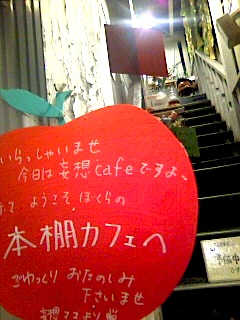 いらっしゃいませ
今日は妄想cafeですよ。
ようこそ ぼくらの
本棚カフェへ
ごゆっくり おたのしみ
下さいませ
準備中